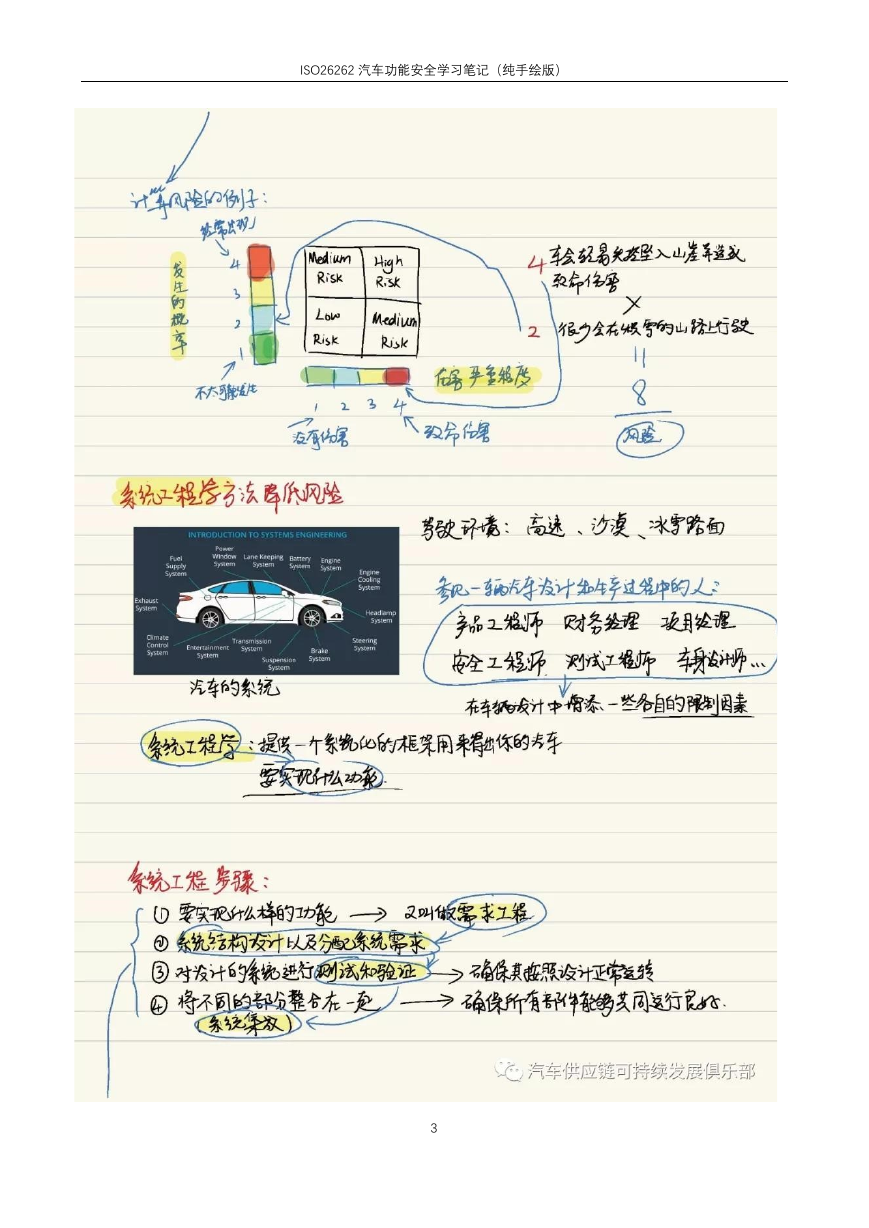 ISO26262 汽车功能安全学习笔记（纯手绘版）
计算风险的例子：
经常出现
发生的概率
4
3
2
1
不太可能发生
Medium Risk
High Risk
Low Risk
Medium Risk
伤害严重程度
1 2 3 4
没有伤害
致命伤害
4 车会轻易失控坠入山崖并造成
致命伤害
×
2 很少会在积雪的山路上行驶
=
8
风险
系统工程学方法降低风险
INTRODUCTION TO SYSTEMS ENGINEERING
Fuel Supply System
Power Window System
Lane Keeping System
Battery System
Engine System
Engine Cooling System
Exhaust System
Headlamp System
Climate Control System
Entertainment System
Transmission System
Suspension System
Brake System
Steering System
汽车的系统
驾驶环境：高速、沙漠、冰雪路面
参与一辆汽车设计和生产过程中的人：
产品工程师 财务经理 项目经理
安全工程师 测试工程师 车身设计师...
在车辆设计中增添一些各自的限制因素
系统工程学：提供一个系统化的框架用来得出你的汽车
要实现什么功能.
系统工程步骤：
① 要实现什么样的功能 → 又叫做需求工程
② 系统结构设计以及分配系统需求
③ 对设计的系统进行测试和验证 → 确保其按照设计正常运转
④ 将不同的部分整合在一起 → 确保所有部件能够共同运行良好.
(系统集成)
汽车供应链可持续发展俱乐部
3